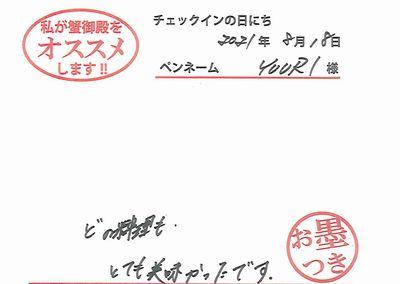 私が蟹御殿を
オススメ
します!!
チェックインの日にち
2021年 8月18日
ペンネーム YUURI 様
どの料理も
とても美味かったです.
お墨
つき